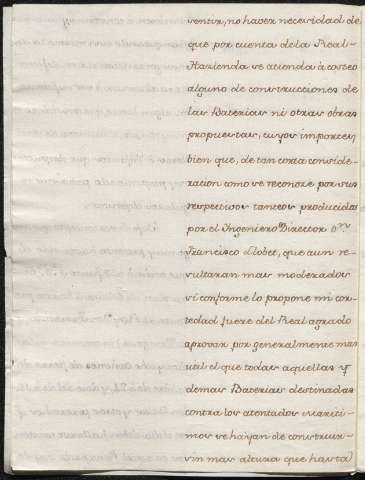 sentir, no haver necesidad de
que por cuenta de la Real
Hazienda se atienda à costeo
alguno de construcciones de
las Baterias ni otras obras
propuestas, cuyos importes
bien que, de tan corta conside-
racion como se reconoze por sus
respectivos tanteos producidos
por el Ingeniero Director Dn.
Francisco Llobet, que aun re-
sultaran mas moderados
si conforme lo propone mi cor-
tedad fuere del Real agrado
aprovar por generalmente mas
util el que todas aquellas y
demas Baterias destinadas
contra los atentados mariti-
mos se hayan de construir
sin mas altura que hasta